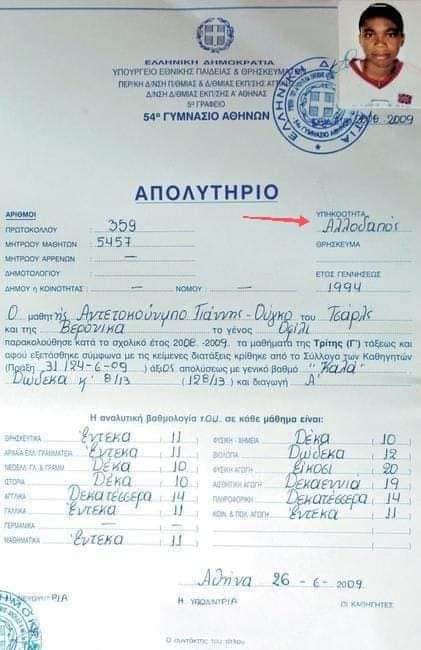 ΕΛΛΗΝΙΚΗ ΔΗΜΟΚΡΑΤΙΑ
ΥΠΟΥΡΓΕΙΟ ΕΘΝΙΚΗΣ ΠΑΙΔΕΙΑΣ & ΘΡΗΣΚΕΥΜΑΤΩΝ
ΠΕΡΙΦ. Δ/ΝΣΗ Π/ΘΜΙΑΣ & Δ/ΘΜΙΑΣ ΕΚΠ/ΣΗΣ
Δ/ΝΣΗ Δ/ΘΜΙΑΣ ΕΚΠ/ΣΗΣ Α' ΑΘΗΝΑΣ
5º ΓΡΑΦΕΙΟ
54º ΓΥΜΝΑΣΙΟ ΑΘΗΝΩΝ
2009
ΑΠΟΛΥΤΗΡΙΟ
ΑΡΙΘΜΟΙ
ΥΠΗΚΟΟΤΗΤΑ
ΠΡΩΤΟΚΟΛΛΟΥ : 359
Αλλοδαπός
ΜΗΤΡΩΟΥ ΜΑΘΗΤΩΝ : 5457
ΘΡΗΣΚΕΥΜΑ
ΜΗΤΡΩΟΥ ΑΡΡΕΝΩΝ : —
ΔΗΜΟΤΟΛΟΓΙΟΥ :
ΕΤΟΣ ΓΕΝΝΗΣΕΩΣ
ΔΗΜΟΥ ή ΚΟΙΝΟΤΗΤΑΣ : — ΝΟΜΟΥ : —
1994
Ο μαθητής Αντετοκούνμπο Γιάννης - Ούγκο του Τσάρλς
και της Βερόνικα το γένος Οφίλι
παρακολούθησε κατά το σχολικό έτος 2008 -2009. τα μαθήματα της Τρίτης (Γ') τάξεως και
αφού εξετάσθηκε σύμφωνα με τις κείμενες διατάξεις κρίθηκε από το Σύλλογο των Καθηγητών
(Πράξη 31/24-6-09) άξιος απολύσεως με γενικό βαθμό "Καλά"
Δώδεκα κ' 8/13 (12 8/13) και διαγωγή Α'
Η αναλυτική βαθμολογία του σε κάθε μάθημα είναι:
ΘΡΗΣΚΕΥΤΙΚΑ Έντεκα ( 11
ΑΡΧΑΙΑ ΕΛΛ. ΓΡΑΜΜΑΤΕΙΑ Έντεκα ( 11
ΝΕΟΕΛΛ. ΓΛ. & ΓΡΑΜΜ. Δέκα ( 10
ΙΣΤΟΡΙΑ Δέκα ( 10
ΑΓΓΛΙΚΑ Δεκατέσσερα ( 14
ΓΑΛΛΙΚΑ Έντεκα ( 11
ΓΕΡΜΑΝΙΚΑ — —
ΜΑΘΗΜΑΤΙΚΑ Έντεκα ( 11
ΦΥΣΙΚΗ - ΧΗΜΕΙΑ Δέκα ( 10
ΒΙΟΛΟΓΙΑ Δώδεκα ( 12
ΦΥΣΙΚΗ ΑΓΩΓΗ Είκοσι ( 20
ΑΙΣΘΗΤΙΚΗ ΑΓΩΓΗ Δεκαεννιά ( 19
ΠΛΗΡΟΦΟΡΙΚΗ Δεκατέσσερα ( 14
ΚΟΙΝ. & ΠΟΛ. ΑΓΩΓΗ Έντεκα ( 11
Αθήνα 26 - 6 - 2009
Η ΥΠΟΔ/ΝΤΡΙΑ ΟΙ ΚΑΘΗΓΗΤΕΣ
Ο συντάκτης του τίτλου